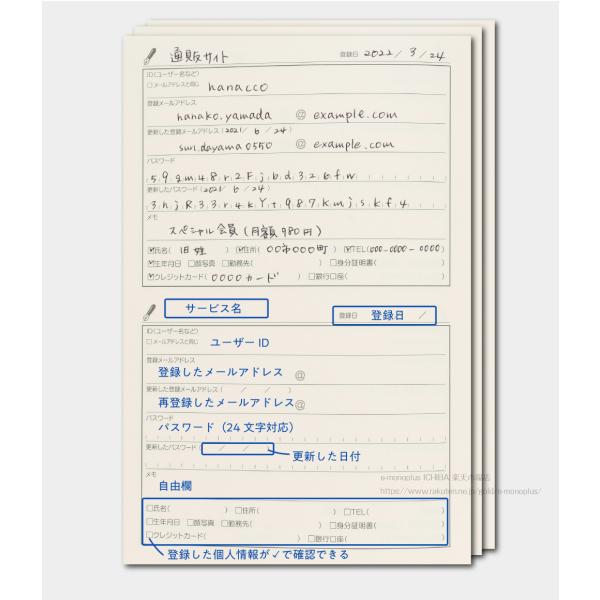 通販サイト
登録日 2022/3/24
ID(ユーザー名など)
□メールアドレスと同じ hanacco
登録メールアドレス
hanako.yamada @ example.com
更新した登録メールアドレス (2021/6/24)
sun.dayama0550 @ example.com
パスワード
59qm48r2Fjbd326fw
更新したパスワード (2021/6/24)
3hjR33r4kYt987kmjskf4
メモ
スペシャル会員(月額980円)
☑氏名(旧姓) ☑住所(〇〇市〇〇〇町) ☑TEL(000-0000-0000)
☑生年月日 □顔写真 □勤務先( ) □身分証明書( )
☑クレジットカード(〇〇〇〇カード) □銀行口座( )
サービス名
登録日 登録日 /
ID(ユーザー名など)
□メールアドレスと同じ ユーザーID
登録メールアドレス
登録したメールアドレス @
更新した登録メールアドレス( / / )
再登録したメールアドレス @
パスワード
パスワード(24文字対応)
更新したパスワード( / / )
更新した日付
メモ
自由欄
e-monoplus ICHIBA 楽天市場店
https://www.rakuten.ne.jp/gold/e-monoplus/
□氏名( ) □住所( ) □TEL( )
□生年月日 □顔写真 □勤務先( ) □身分証明書( )
□クレジットカード( ) □銀行口座( )
登録した個人情報が✓で確認できる